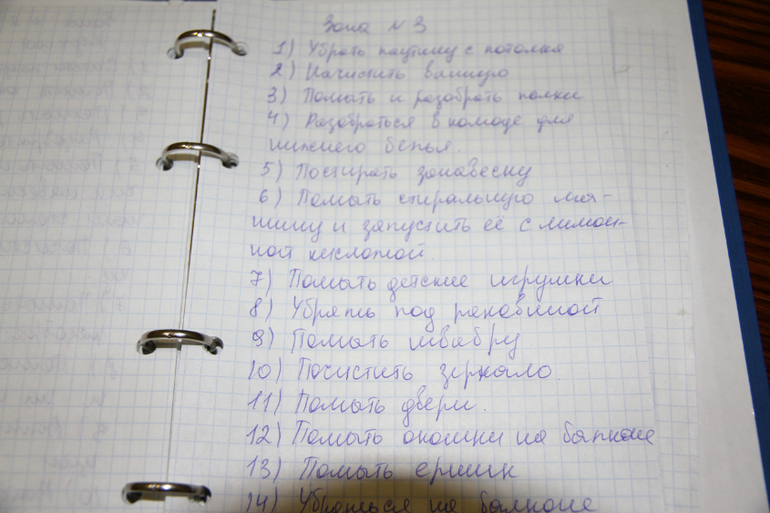 Зона №3
1) Убрать паутину с потолка
2) Начистить ванную
3) Помыть и разобрать полки
4) Разобраться в комоде для
нижнего белья.
5) Постирать занавеску
6) Помыть стиральную ма-
шину и запустить её с лимон-
ной кислотой
7) Помыть детские игрушки
8) Убрать под раковиной
9) Помыть швабру
10) Почистить зеркало.
11) Помыть двери.
12) Помыть окошки на балконе
13) Помыть ершик
14) Убраться на балконе